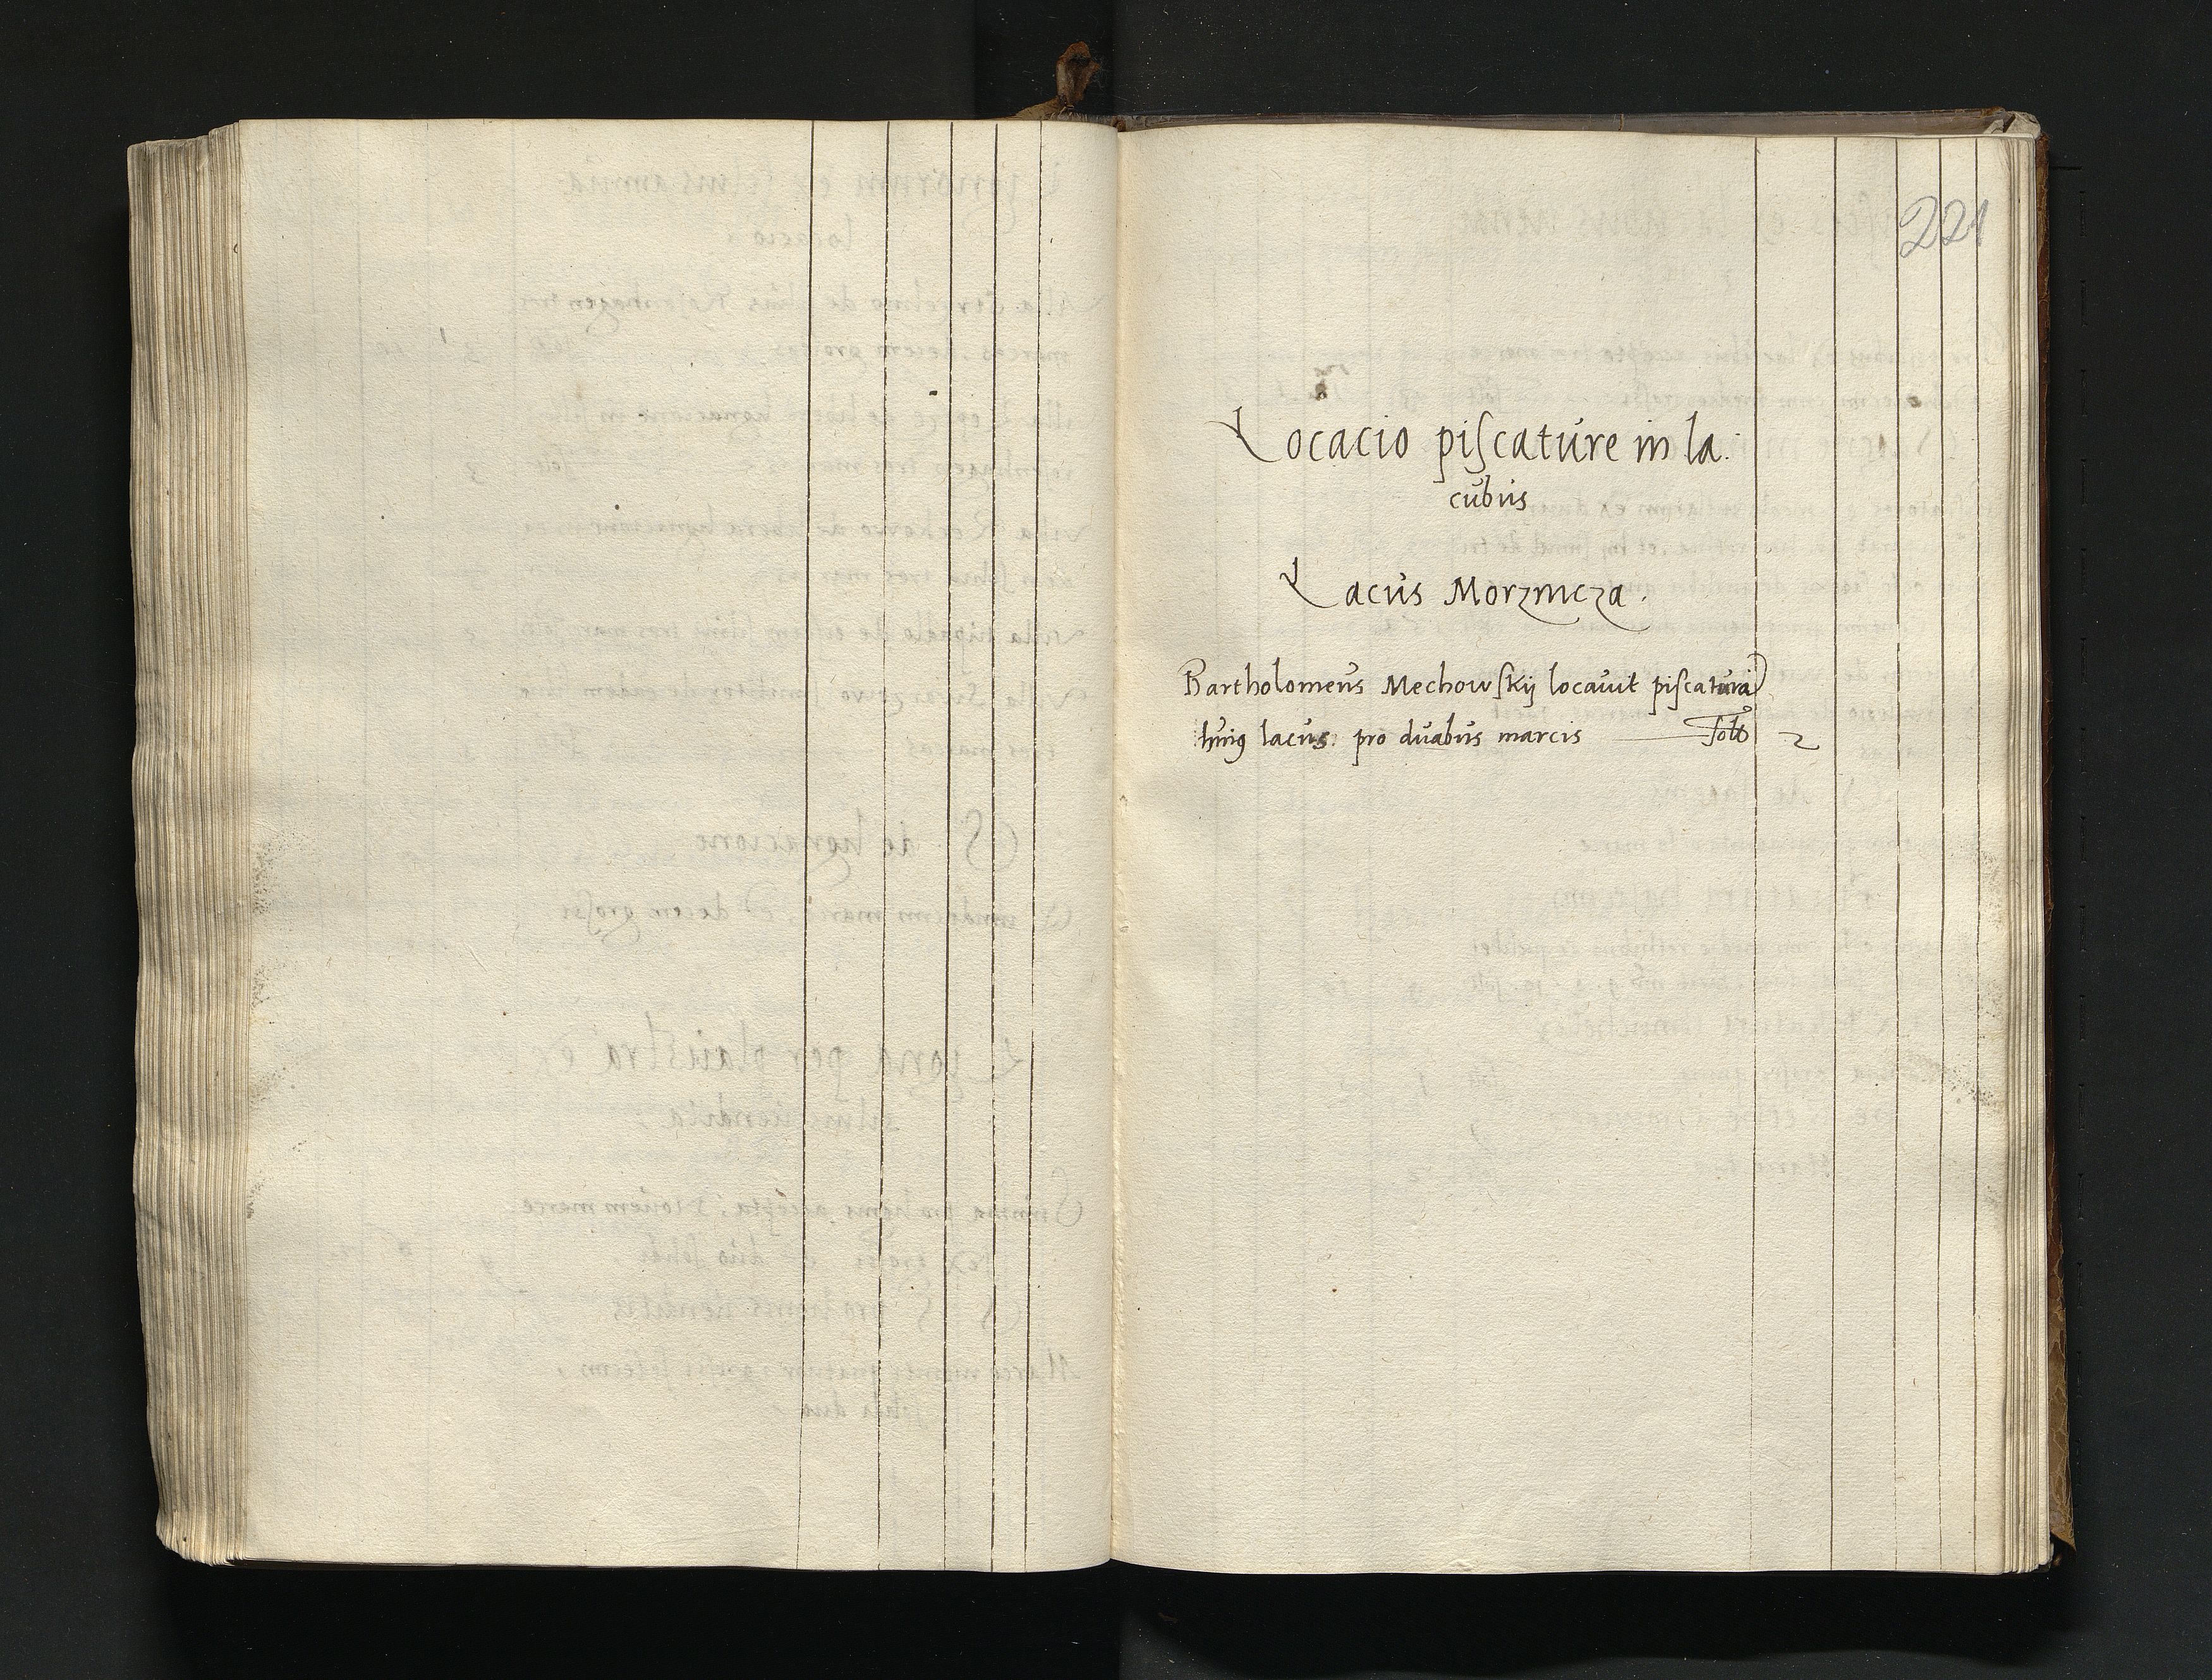 221
Locacio piscature in la
cubus
Lacus Morzincza.
Bartholomeus Mechowskij locauit piscaturā
huiꝯ lacus pro duabus marcis solt 2